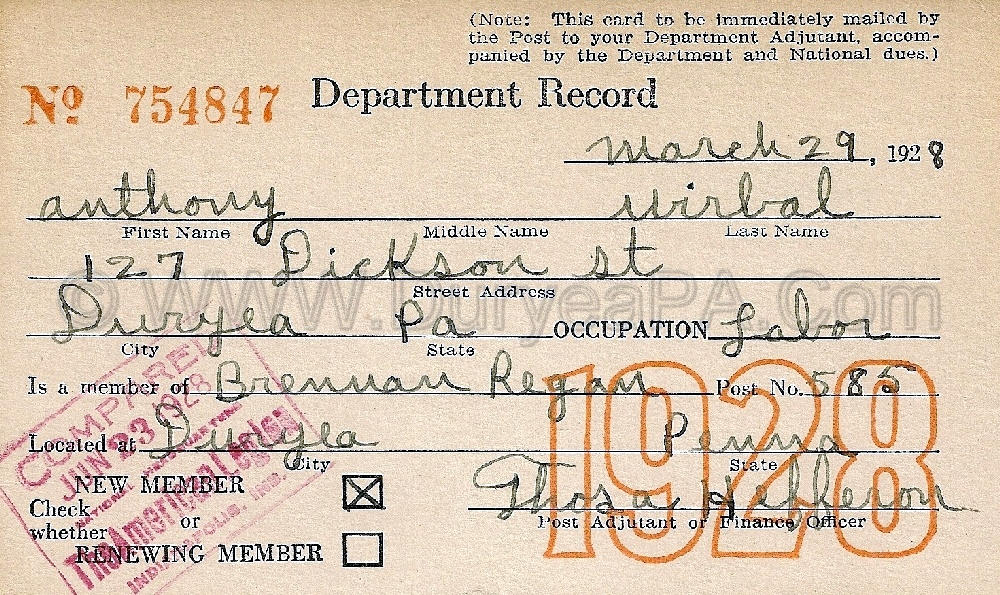 (Note: This card to be immediately mailed by
the Post to your Department Adjutant, accom-
panied by the Department and National dues.)
Nº 754847 Department Record
March 29, 1928
anthony Wirbal
First Name Middle Name Last Name
127 Dickson st
Street Address
© WWW.DuryeaPA.Com
Duryea Pa OCCUPATION Labor
City State
Is a member of Brennan Regan Post No. 585
Located at Duryea Penna
City State
1928
COMPARED
JUN 23 1928
The American Legion
NEW MEMBER
Check whether or
RENEWING MEMBER
Thos a, Hefferon
Post Adjutant or Finance Officer